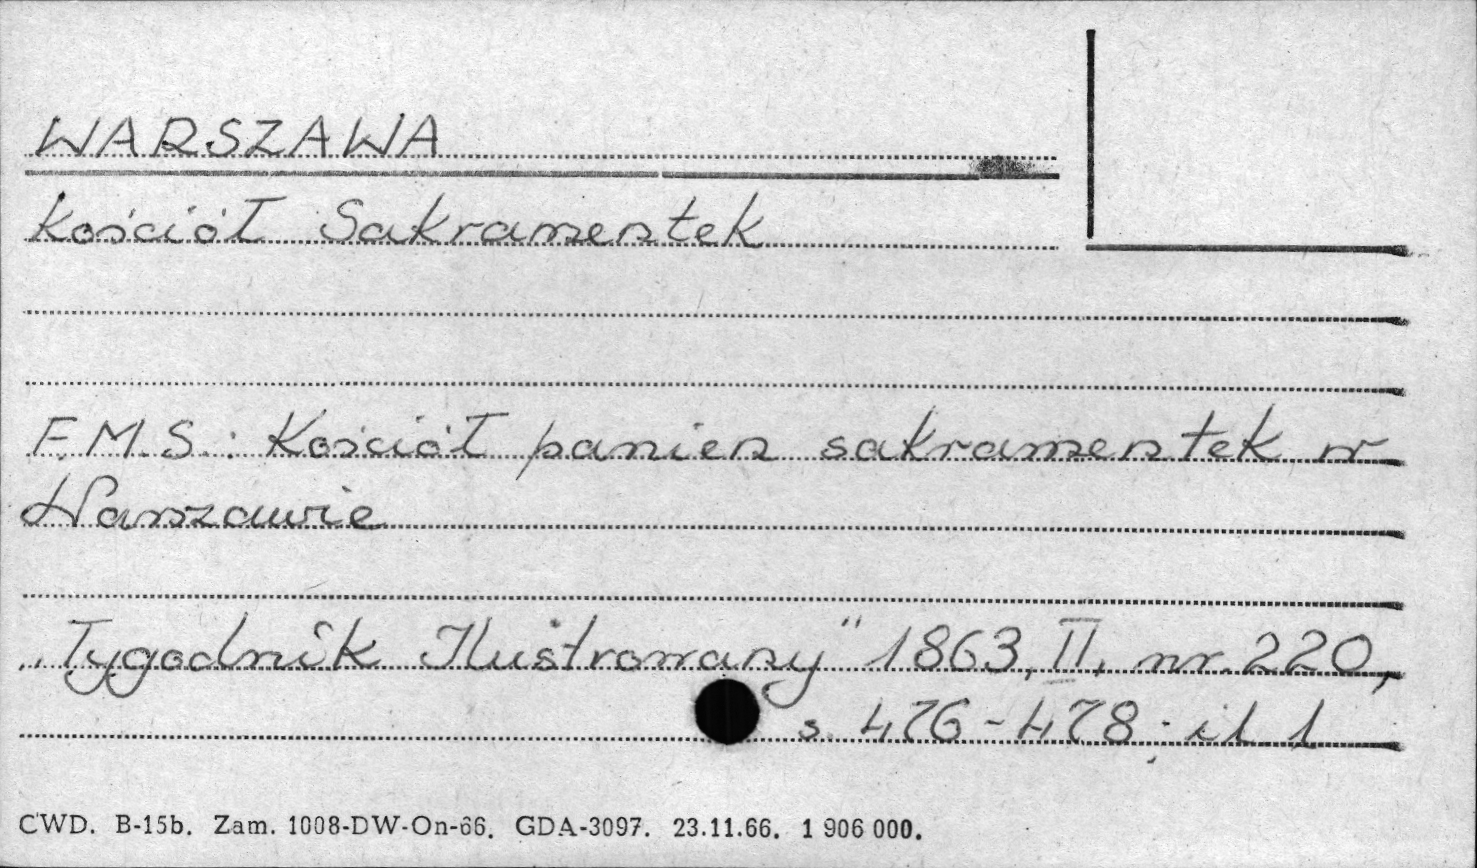 WARSZAWA
Kościół Sakramentek
F.M.S.: Kościół panien sakramentek w
Warszawie
„Tygodnik Ilustrowany" 1863, II, nr. 220,
s. 476-478; il 1
CWD. B-15b. Zam. 1008-DW-On-66. GDA-3097. 23.11.66. 1 906 000.